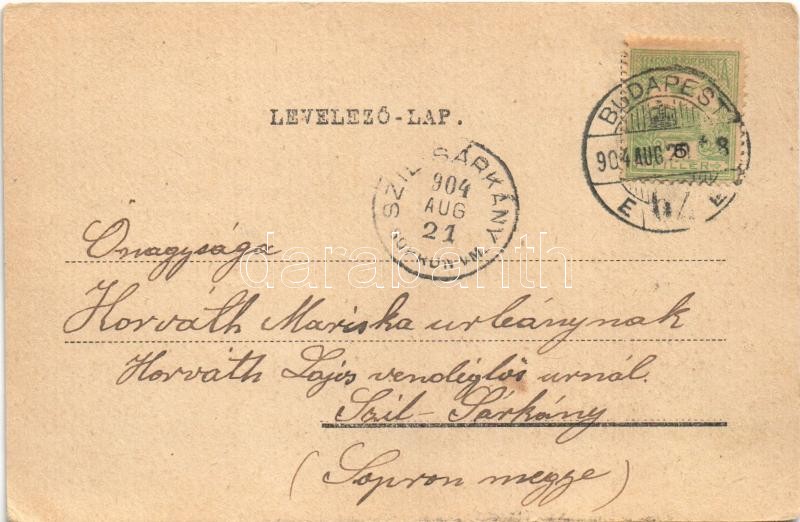 LEVELEZŐ-LAP.
MAGYAR KIR. POSTA
BUDAPEST
904 AUG 20
8
E 62 E
5
FILLÉR
SZIL-SÁRKÁNY
904
AUG
21
SOPRON-VM.
Őnagysága
Horváth Mariska urleánynak
Horváth Lajos vendéglős urnál.
Szil-Sárkány
(Sopron megye)
darabanth